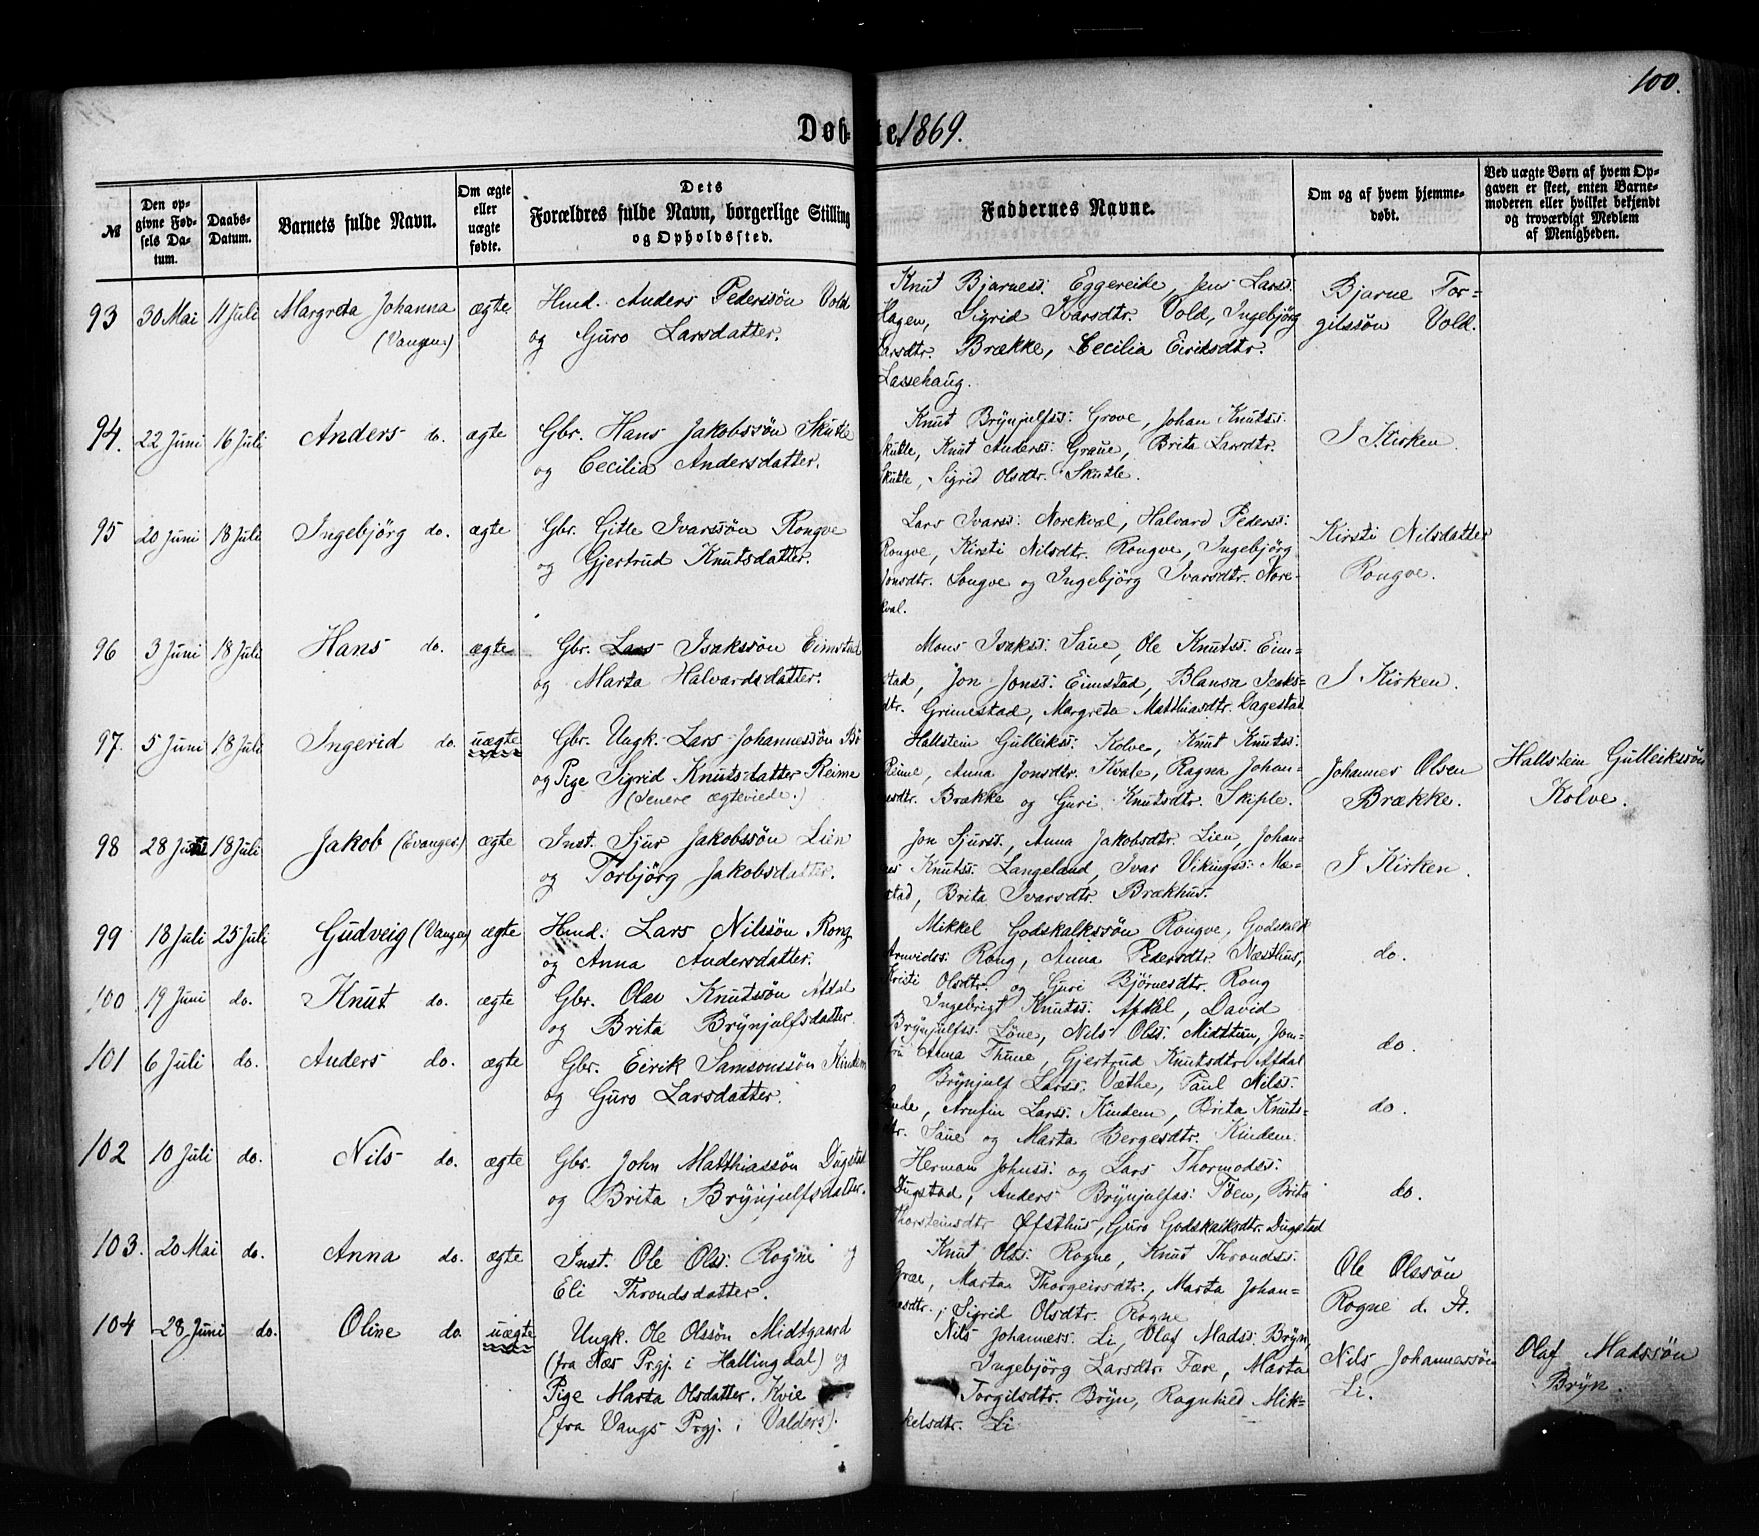 100.
Døbte 1869.
№
Den opgivne Fødsels Datum.
Daabs-Datum.
Barnets fulde Navn.
Om ægte eller uægte fødte.
Dets Forældres fulde Navn, borgerlige Stilling og Opholdssted.
Faddernes Navne.
Om og af hvem hjemmedøbt.
Ved uægte Børn af hvem Opgaven er skeet, enten Barnemoderen eller hvilket bekjendt og troværdigt Medlem af Menigheden.
93 30 Mai 11 Juli Margreta Johanna (Vangen.) ægte
Hmd. Anders Pederssøn Vold
og Guro Larsdatter.
Knut Bjarness: Eggereide, Jens Larss:
Hagen, Sigrid Ivarsdtr. Vold, Ingebjörg
Larsdtr. Brække, Cecilia Eiriksdtr.
Lassehaug.
Bjarne Tor-
gilssøn Vold.
94. 22 Juni 16 Juli Anders do. ægte
Gbr. Hans Jakobssøn Skutle
og Cecilia Andersdatter.
Knut Brÿnjulfss: Grove, Johan Knutss:
Skutle, Knut Anderss: Graue, Brita Larsdtr.
Skutle, Sigrid Olsdtr. Skutle.
I Kirken.
95 20 Juni 18 Juli Ingebjörg do. ægte
Gbr. Gitle Ivarssøn Rongve
og Gjertrud Knutsdatter.
Lars Ivarss: Norekval, Halvard Pederss:
Rongve, Kirsti Nilsdtr. Rongve, Ingebjörg
Jonsdtr. Songve og Ingebjörg Ivarsdtr. Nore-
kval.
Kirsti Nilsdatter
Rongve.
96 3 Juni 18 Juli Hans do. ægte
Gbr. Lars Isakssøn Eimstad
og Marta Halvardsdatter.
Mons Isakss: Saue, Ole Knutss: Eim-
stad, Jon Jonss: Eimstad, Blansa Isaks-
dtr. Grimestad, Margreta Matthiasdtr. Dagestad
I Kirken.
97. 5 Juni 18 Juli Ingerid do. uægte
Gbr. Ungk. Lars Johannessøn Bø
og Pige Sigrid Knutsdatter Reime
(Senere ægteviede.)
Hallstein Gulleikss: Kolve, Knut Knutss:
Reime, Anna Jonsdtr. Kvale, Ragna Johan-
nesdtr. Brække og Guri Knutsdtr. Skiple.
Johannes Olsen
Brække.
Hallstein Gulleikssøn
Kolve.
98 28 18 Juli Jakob (Evanger.) ægte
Inst. Sjur Jakobssøn Lien
og Torbjörg Jakobsdatter.
Jon Sjurss:, Anna Jakobsdtr. Lien, Johan-
nes Knutss: Langeland, Ivar Vikingss: Mæ-
stad, Brita Ivarsdtr. Brækhus.
I Kirken.
99 18 Juli 25 Juli Gudveig (Vangen) ægte
Hmd: Lars Nilssøn Rong
og Anna Andersdatter.
Mikkel Godskalkssøn Rongve, Godskalk
Arnvidss: Rong, Anna Pedersdtr. Næsthus,
Kristi Olsdtr. og Guri Bjørnesdtr. Rong
do.
100. 19 Juni do. Knut do. ægte
Gbr. Olav Knutssøn Afdal
og Brita Brÿnjulfsdatter.
Ingebrigt Knutss: Afdal, David
Brÿnjulfss: Löne, Nils Olss: Midttun, Jom-
fru Anna Thune, Gjertrud Knutsdtr. Afdal
do.
101 6 Juli do. Anders do. ægte
Gbr. Eirik Samsonssøn Kindem
og Guro Larsdatter.
Brÿnjulf Larss: Væthe, Paul Nilss:
Arnfin Larss: Kindem, Brita Knuts-
dtr. Saue og Marta Bergesdtr. Kindem.
do.
102 10 Juli do. Nils do. ægte
Gbr. John Matthiassøn Dugstad
og Brita Brÿnjulfsdatter.
Herman Johnss: og Lars Thormodss:
Dugstad, Anders Brÿnjulfss: Töen, Brita
Thorsteinsdtr Øfsthus, Guro Godskalksdtr. Dugstad
do.
103. 20 Mai do. Anna do. ægte
Inst. Ole Olss: Rogne og
Eli Throndsdatter.
Knut Olss: Rogne, Knut Throndss:
Græe, Marta Thorgeirsdtr., Marta Johan-
nesdtr., Sigrid Olsdtr. Rogne
Ole Olssøn
Rogne d. Æ.
104 28 Juni do. Oline do. uægte
Ungk. Ole Olssøn Midtgaard
(fra Næs Prgj. i Hallingdal) og
Pige Marta Olsdatter Kvie
(fra Vangs Prgj. i Valders).
Nils Johanness. Li, Olaf Madss: Brÿn,
Ingebjörg Larsdtr. Fære, Marta
Torgilsdtr. Brÿn, Ragnhild Mik-
kelsdtr. Li
Nils Johannessøn
Li.
Olaf Madssøn
Brÿn.